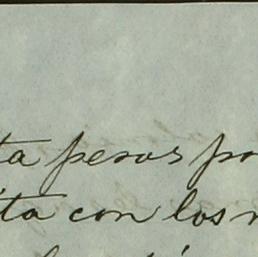 ta pesos po
ita con los